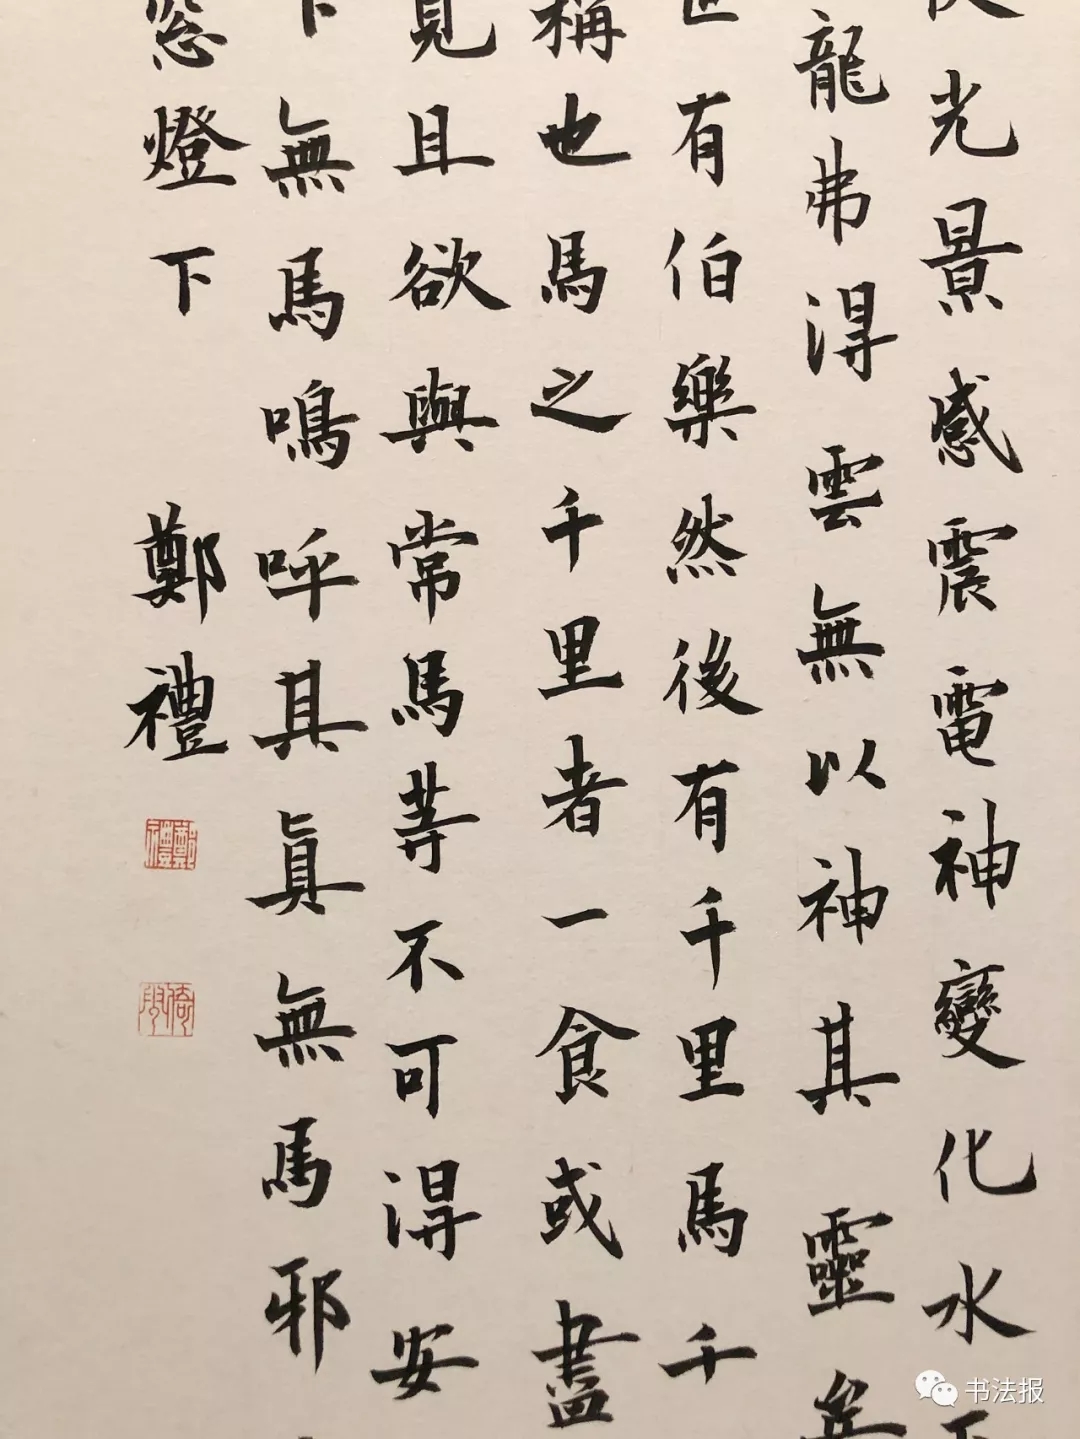 光景感震電神變化水下
龍弗得雲無以神其靈矣
世有伯樂然後有千里馬千
稱也馬之千里者一食或盡
見且欲與常馬等不可得安
下無馬鳴呼其真無馬邪
窓燈下 鄭禮
鄭禮
书法报